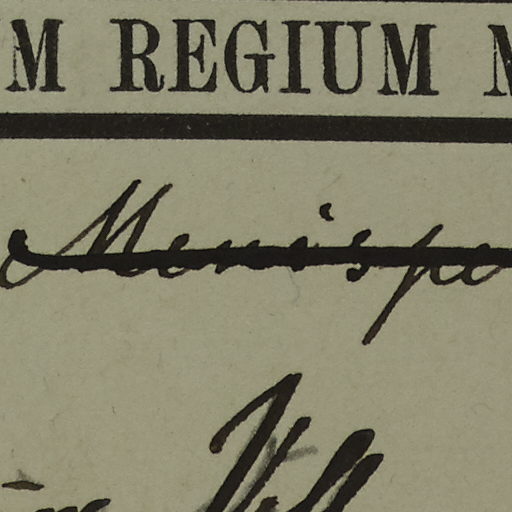 M REGIUM M
Menispe